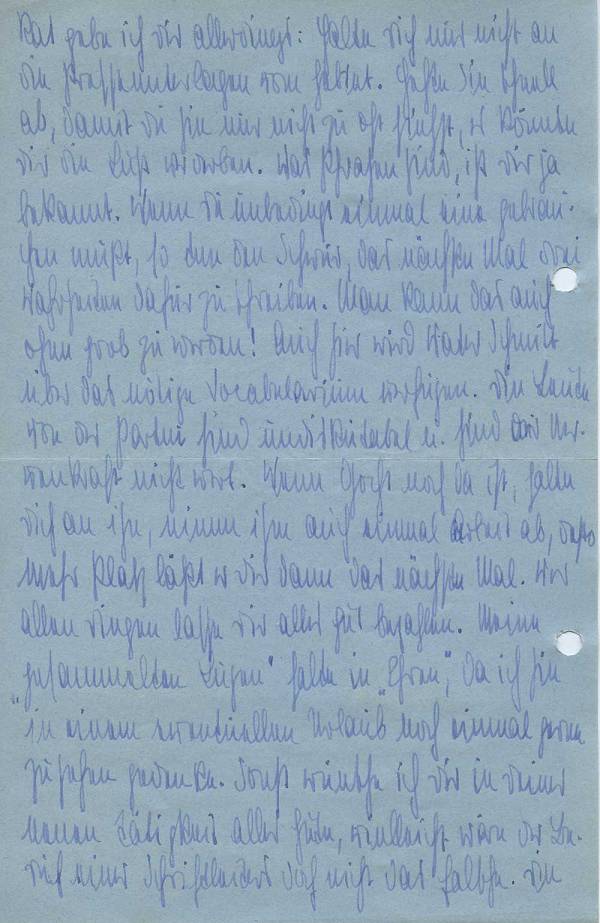 Rat gebe ich dir allerdings: Halte dich nur nicht an
die Presseunterlagen vom Gebiet. Hefte sie schnell
ab, damit du sie nur nicht zu oft siehst, sie könnten
dir die Lust verderben. Was Phrasen sind, ist dir ja
bekannt. Wenn du unbedingt einmal eine gebrau-
chen mußt, so tue den Schwur, das nächste Mal drei
Wahrheiten dafür zu schreiben. Man kann das auch
ohne grob zu werden! Auch hier wird Vater Schmidt
über das nötige Vocabularium verfügen. Die Leute
von der Partei sind undiskutabel u. sind die Ner-
venkraft nicht wert. Wenn noch da ist, halte
dich an ihn, nimm ihm auch einmal Arbeit ab, desto
mehr Platz läßt er dir dann das nächste Mal. Vor
allen Dingen lasse dir alles gut bezahlen. Meine
"gesammelten Lügen" halte in "Ehren", da ich sie
in einem eventuellen Urlaub noch einmal gerne
zu sehen gedenke. Sonst wünsche ich dir in deiner
neuen Tätigkeit alles Gute, vielleicht wäre der Be-
ruf eines Schriftleiters doch nicht das falsche. Die